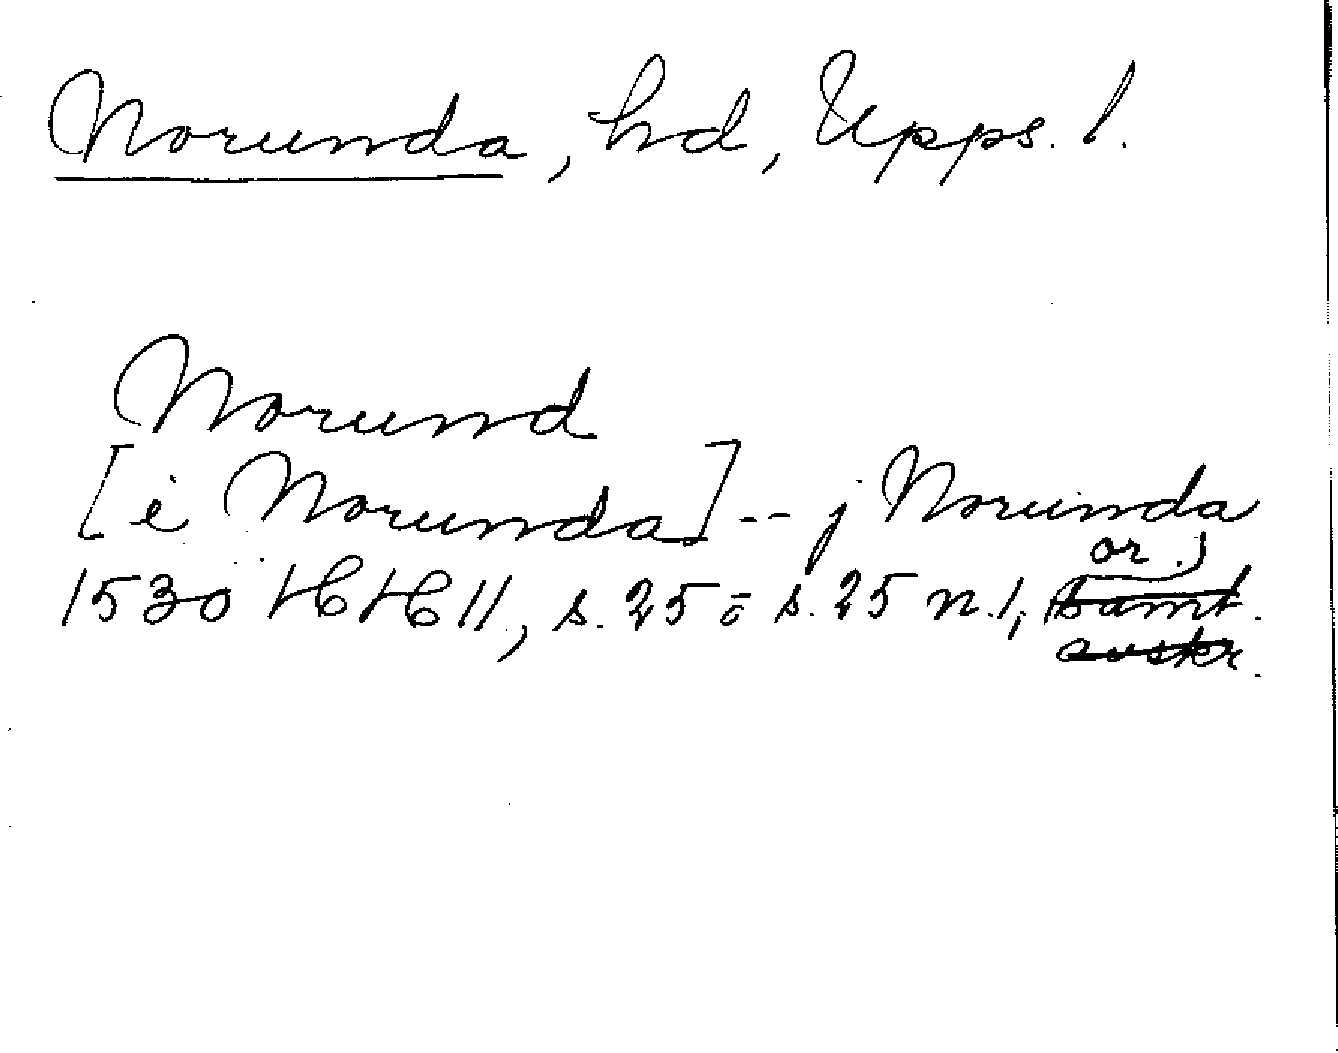 Norunda, hd, Upps. l.
Norund
[i Norunda] -- j Norunda
or.)
1530 HH 11, s. 25 o s. 25 n. 1, samt.
avskr.